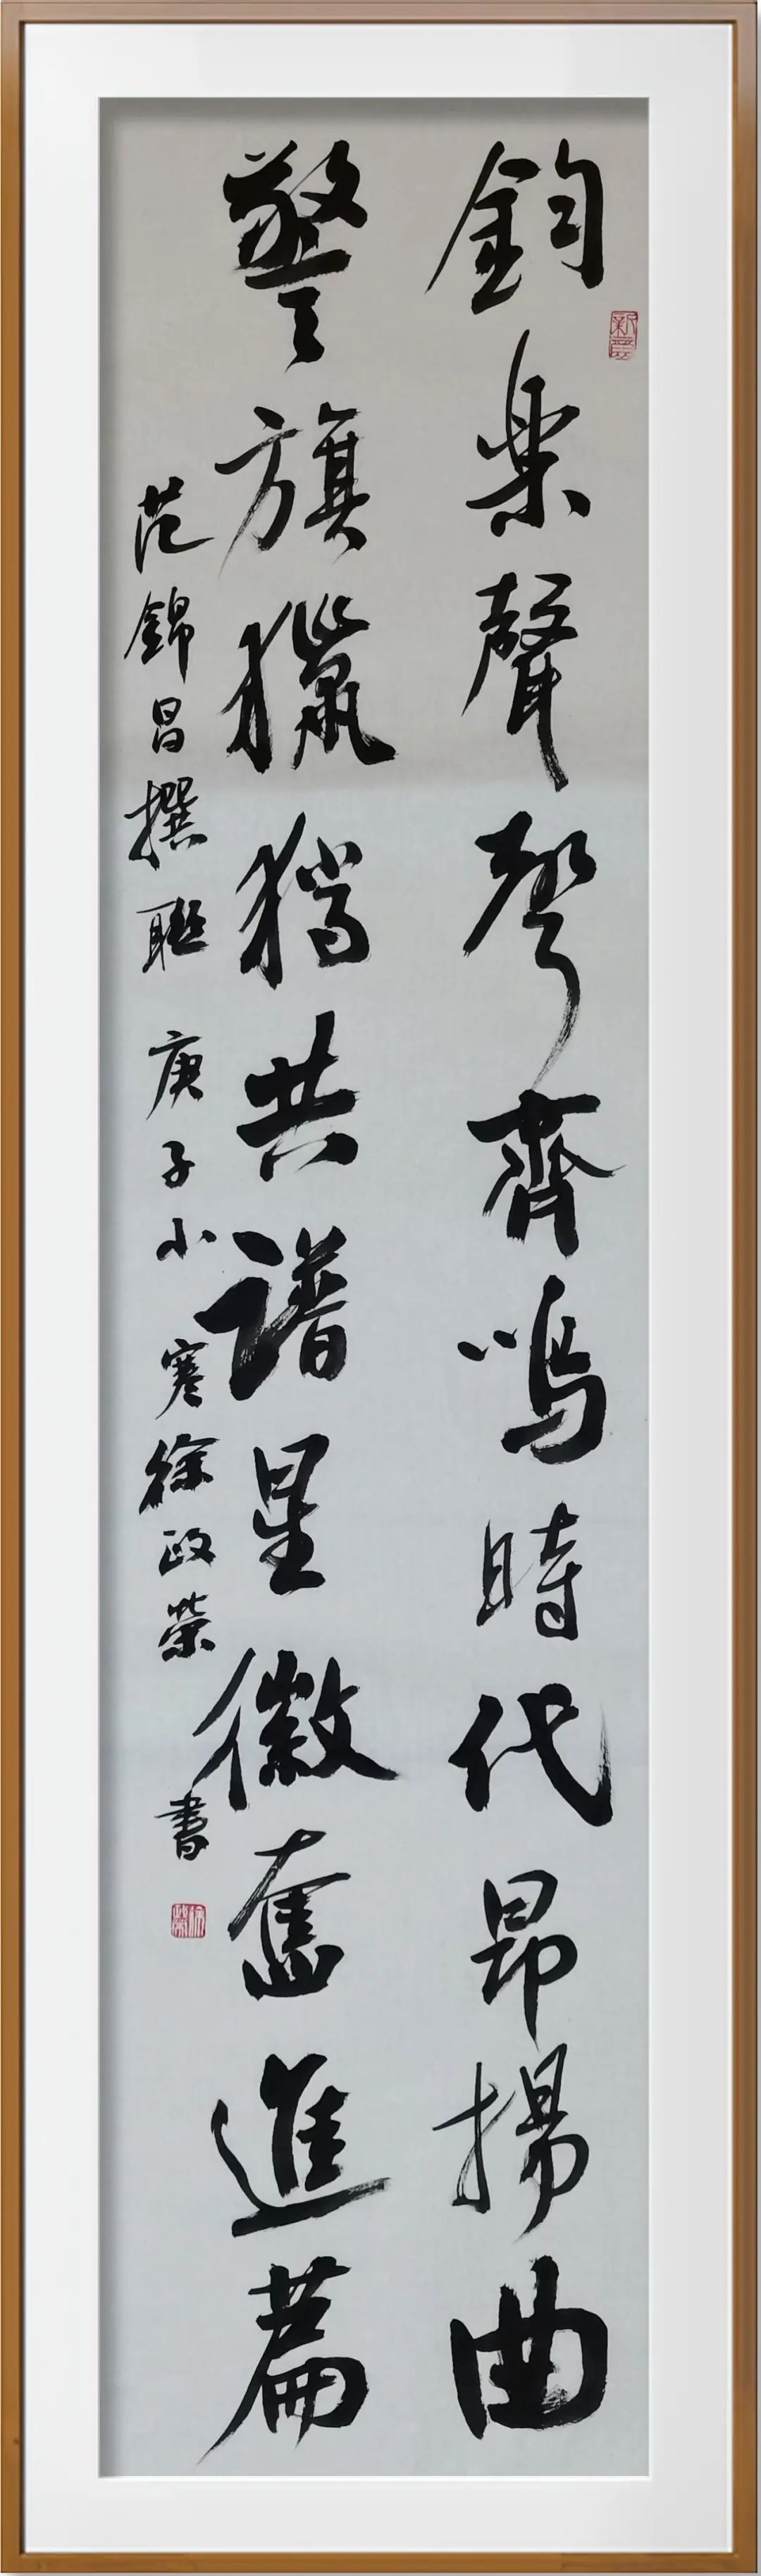 鈞樂聲聲齊鳴時代昂揚曲
警旗獵獵共譜星徽奮進篇
范錦昌撰聯 庚子小寒徐政榮書